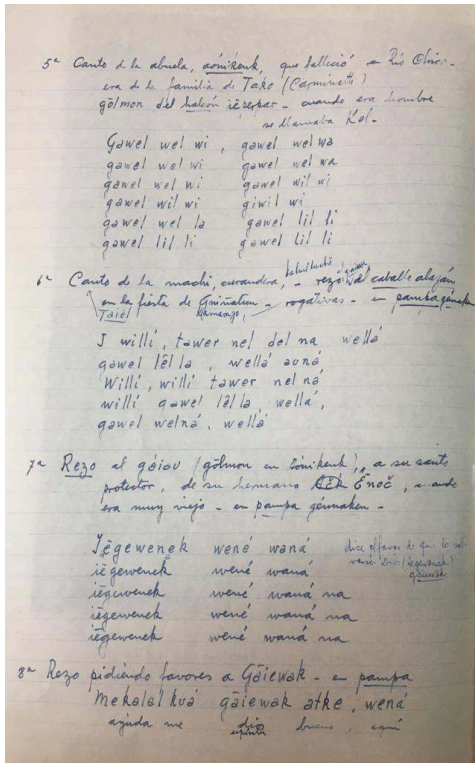 5ª Canto de la abuela, aónikenk, que falleció en Río Chico-
era de la familia de Tako (Carminatti)
gōlmon del halcón iēperkar - cuando era hombre
se llamaba Kol-
Gawel wel wi, gawel wel wa
gawel wel wi gawel wel wa
gawel wel wi gawel wil wi
gawel wil wi giwil wi
gawel wel la gawel lil li
gawel lil li gawel lil li
6ª Canto de la machi, curandera, - rezo del caballo alazán
en la fiesta de - rogativas - en pampa génaken
Taiel Kamaruko,
I willí, tawer nel del na wellá
gawel lēl la, wellá auná
Willí, willí tawer nel ná
willí gawel lâl la, wellá,
gawel welná, wellá
7ª Rezo al gāiau (gōlmon en aónikenk), a su santo
protector, de su hermano Ēnoč, cuando
era muy viejo - en pampa génnaken-
Iēgewenek wené waná
iēgewenek wené waná
iēgewenek wené waná na
iēgewenek wené waná
iēgewenek wené waná na
dice el favor de que lo sal-
ve Dio (iēgewenek)
8ª Rezo pidiendo favores a Gāiewak - en pampa
Mekalal kuá gāiewak atke, wená
ayuda me dio bueno, aquí
espíritu